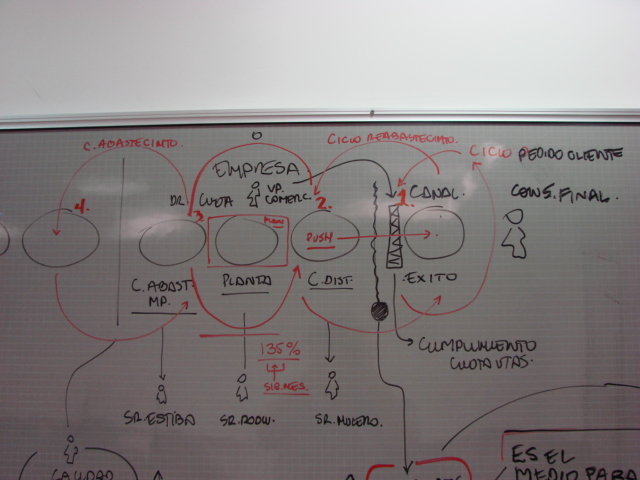 C. ABASTECIMTO.
CICLO REABASTECIMTO.
CICLO PEDIDO CLIENTE
EMPRESA
DR. CUOTA VP. COMERC.
CANAL.
CONS. FINAL.
4.
3.
2.
1.
PUSH
C. ABAST. MP.
PLANTA
C. DIST.
EXITO
135%
CUMPLIMIENTO
CUOTA VTAS.
SR. ESTIBA
SR. MOLERO.
CALIDAD
ES EL
MEDIO PARA